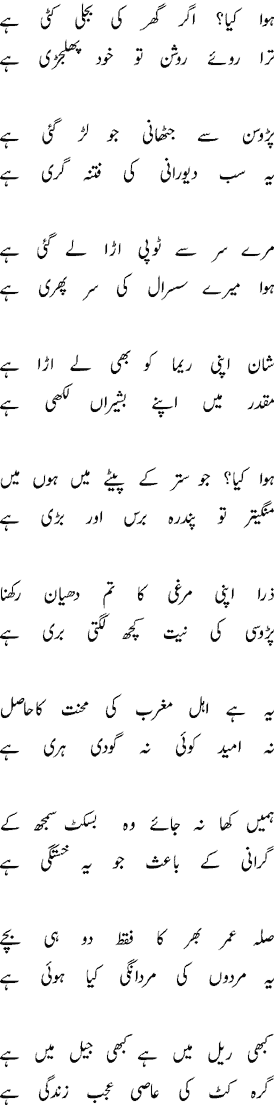 ہوا کیا؟ اگر گھر کی بجلی کٹی ہے
ترا روئے روشن تو خود پھلجڑی ہے
پڑوسن سے جٹھانی جو لڑ گئی ہے
یہ سب دیورانی کی فتنہ گری ہے
مرے سر سے ٹوپی اڑا لے گئی ہے
ہوا میرے سسرال کی سر پھری ہے
شان اپنی ریما کو بھی لے اڑا ہے
مقدر میں اپنے بشیراں لکھی ہے
ہوا کیا؟ جو ستر کے پیٹے میں ہوں میں
منگیتر تو پندرہ برس اور بڑی ہے
ذرا اپنی مرغی کا تم دھیان رکھنا
پڑوسی کی نیت کچھ لگتی بری ہے
یہ ہے اہل مغرب کی محنت کاحاصل
نہ امید کوئی نہ گودی ہری ہے
ہمیں کھا نہ جائے وہ بسکٹ سمجھ کے
گرانی کے باعث جو یہ خستگی ہے
صلہ عمر بھر کا فقط دو ہی بچے
یہ مردوں کی مردانگی کیا ہوئی ہے
کبھی ریل میں ہے کبھی جیل میں ہے
گرہ کٹ کی عاصی عجب زندگی ہے